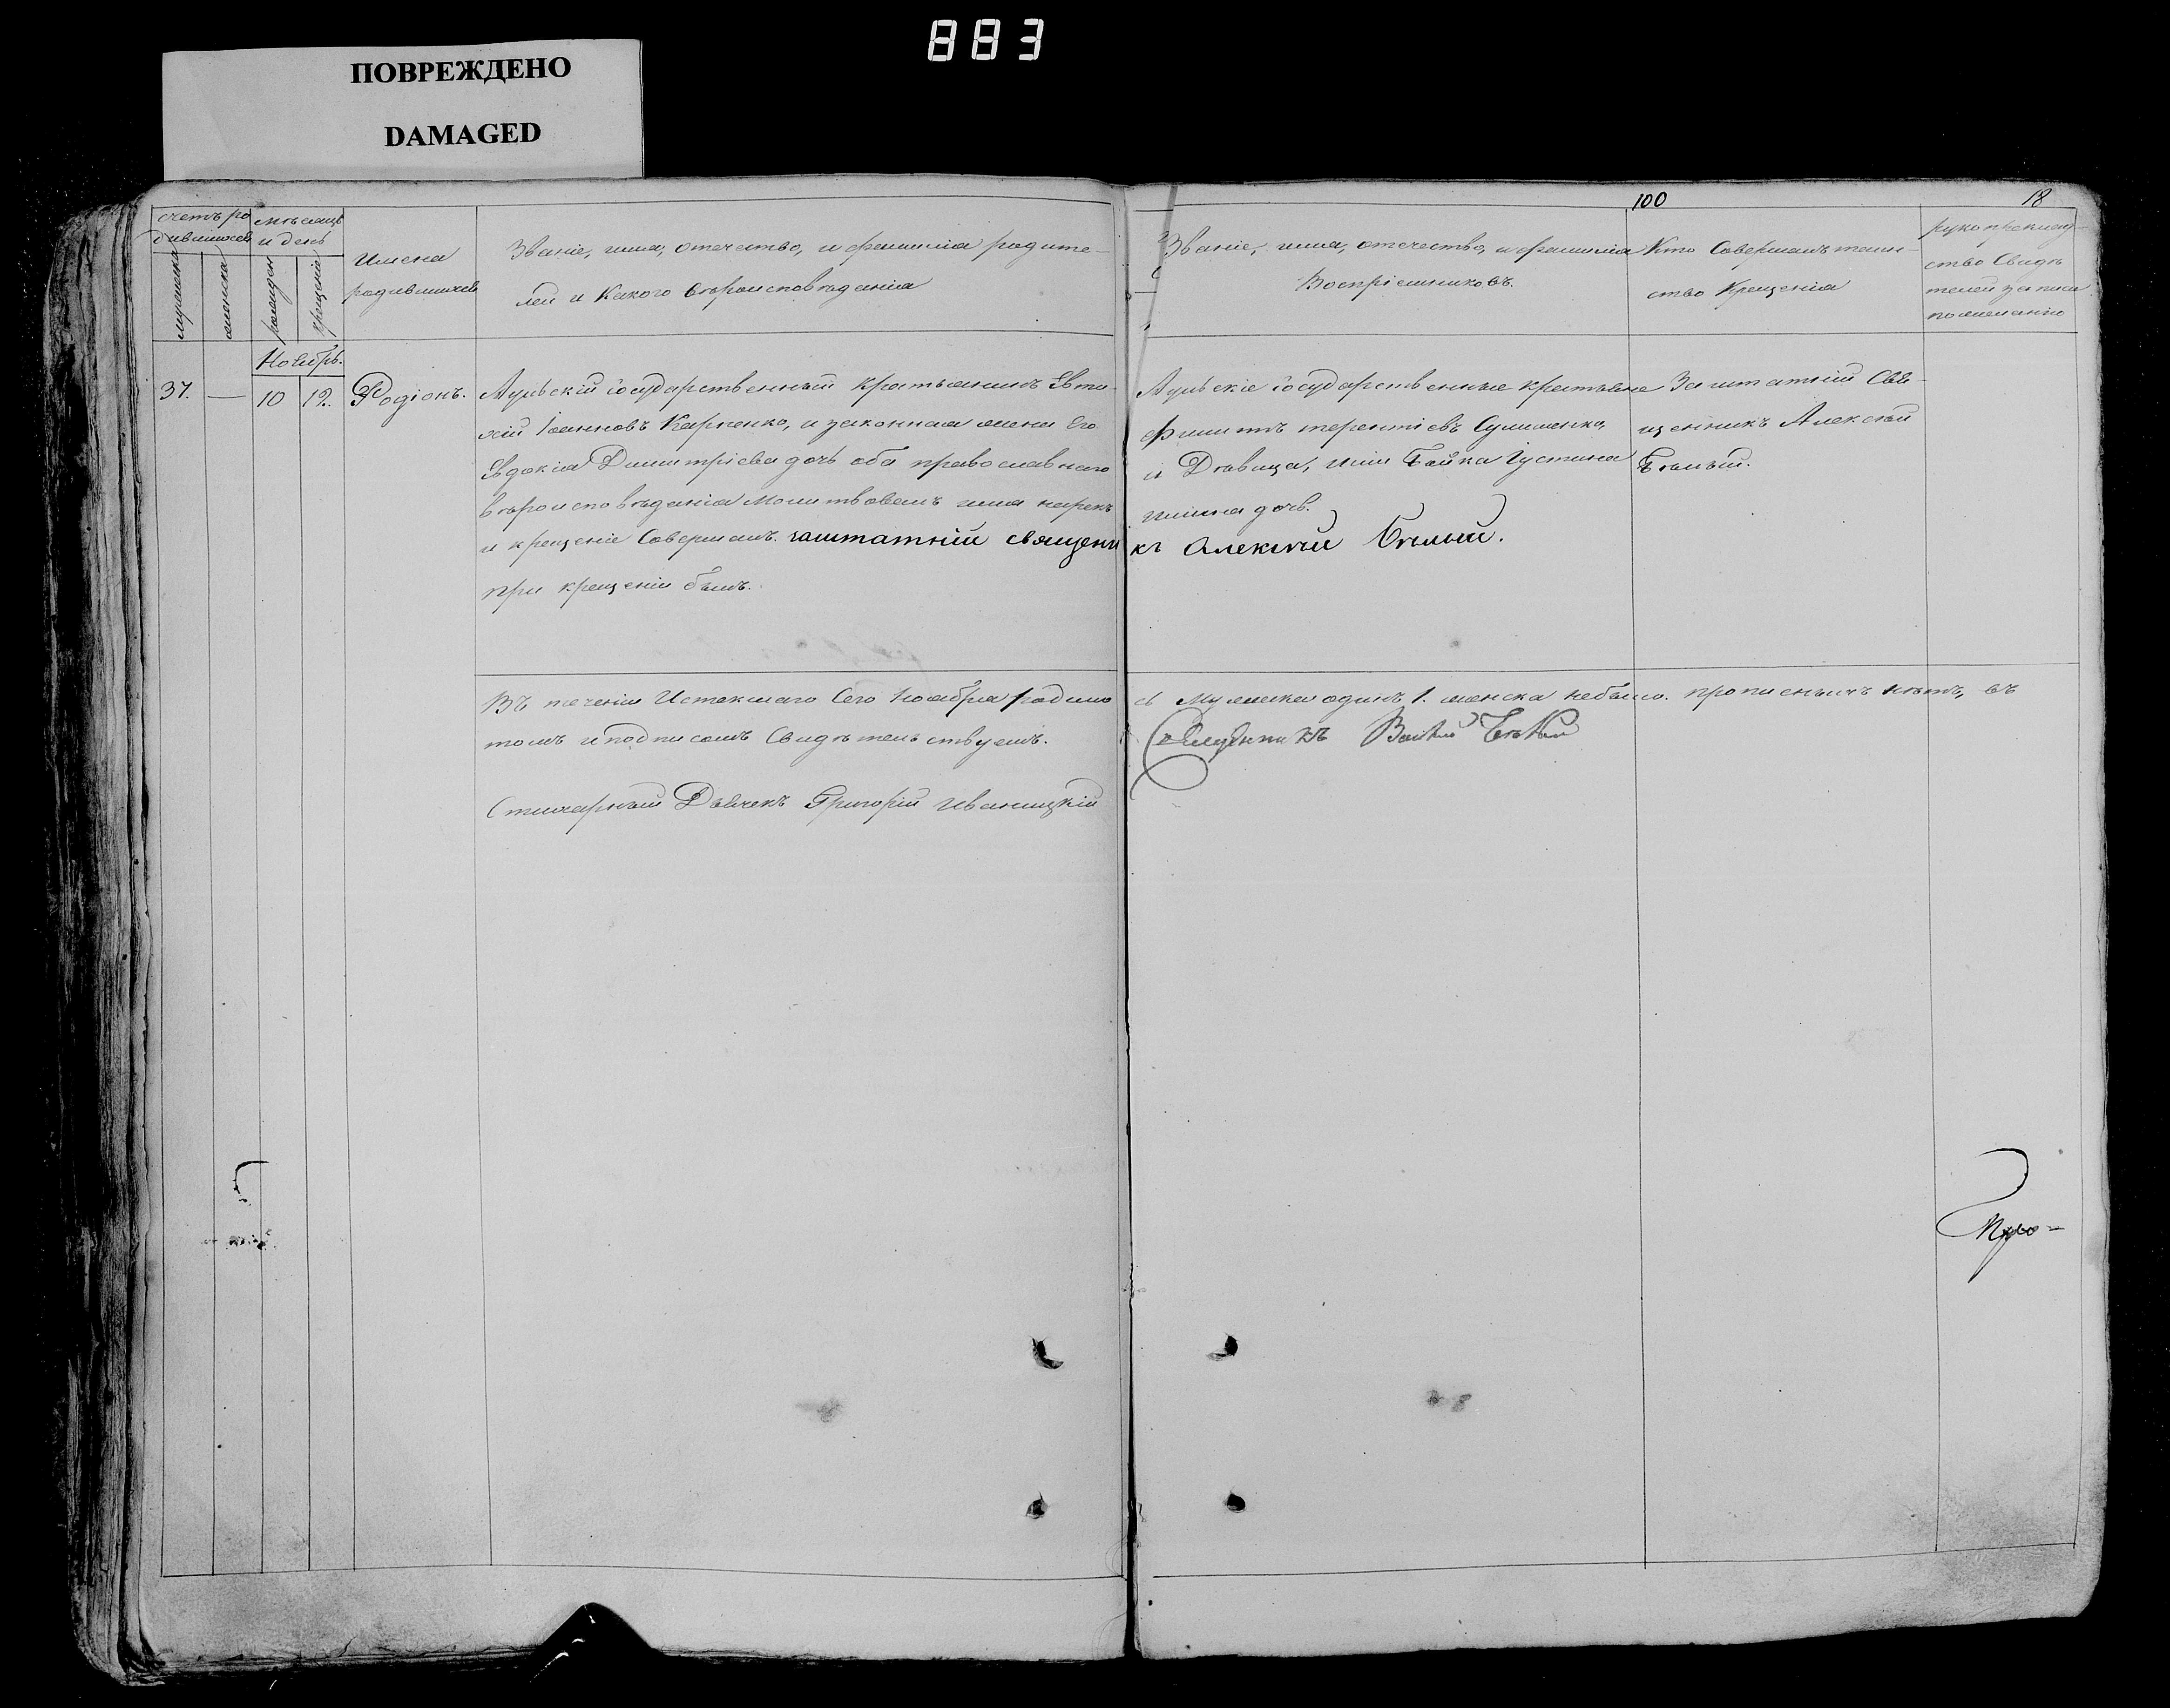 883
ПОВРЕЖДЕНО
DAMAGED
100
18
счетъ ро
дившихся
мѣсяцъ
и день
мужеска
женска
рожден
крещенія
Имена
родившихся
Званіе, имя, отечество, и фамилія родите-
лей и Какого вѣроисповѣданія
Званіе, имя, отечество, и фамилія
Воспріемниковъ.
Кто Совершалъ таин-
ство Крещенія
рукоприклад-
ство Свидѣ
телей записи
по желанію
Ноябрь.
37.
—
10
12.
Родіонъ.
Аульскій государственный крестьянинъ Евти-
хій Іоанновъ Карпенко, и законная жена Его
Евдокія Димитріева дочь оба православнаго
вѣроисповѣданія Молитвовалъ имя нарекъ
и крещеніе Совершалъ. заштатній священни
къ Алексѣй Бѣлый.
при крещеніи былъ.
Аульскіе государственные крестьяне
Филиппъ терентіевъ
и Дѣвица,
дочь.
Заштатній Свя-
щенникъ Алексѣй
Бѣлый.
Въ теченіи Истекшаго Сего Ноября родило
сь Мужеска одинъ 1. женска небыло. прописныхъ нѣтъ, въ
томъ и подписомъ Свидѣтельствуемъ.
Священникъ
Стихарный Дьячекъ Григорій Иваницкій
Про-